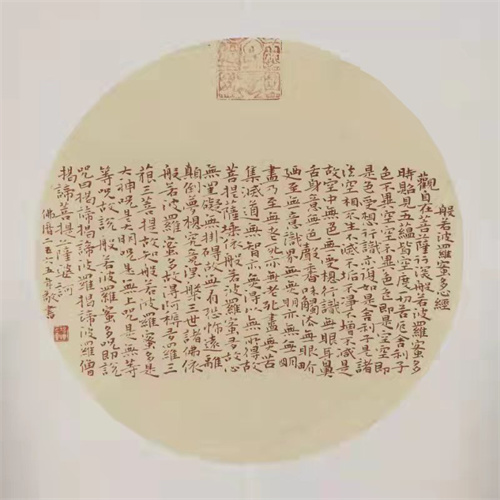 般若波羅蜜多心經
觀自在菩薩行深般若波羅蜜多
時照見五蘊皆空度一切苦厄舍利子
色不異空空不異色色即是空空即
是色受想行識亦復如是舍利子是諸
法空相不生不滅不垢不淨不增不減是
故空中無色無受想行識無眼耳鼻
舌身意無色聲香味觸法無眼界
乃至無意識界無無明亦無無明
盡乃至無老死亦無老死盡無苦
集滅道無智亦無得以無所得故
菩提薩埵依般若波羅蜜多故心
無罣礙無掛礙故無有恐怖遠離
顛倒夢想究竟涅槃三世諸佛依
般若波羅蜜多故得阿耨多羅三
藐三菩提故知般若波羅蜜多是
大神呪是大明呪是無上呪是無等
等呪故說般若波羅蜜多呪即說
呪曰揭諦揭諦波羅揭諦波羅僧
揭諦菩提薩婆訶
佛曆二五六五年敬書